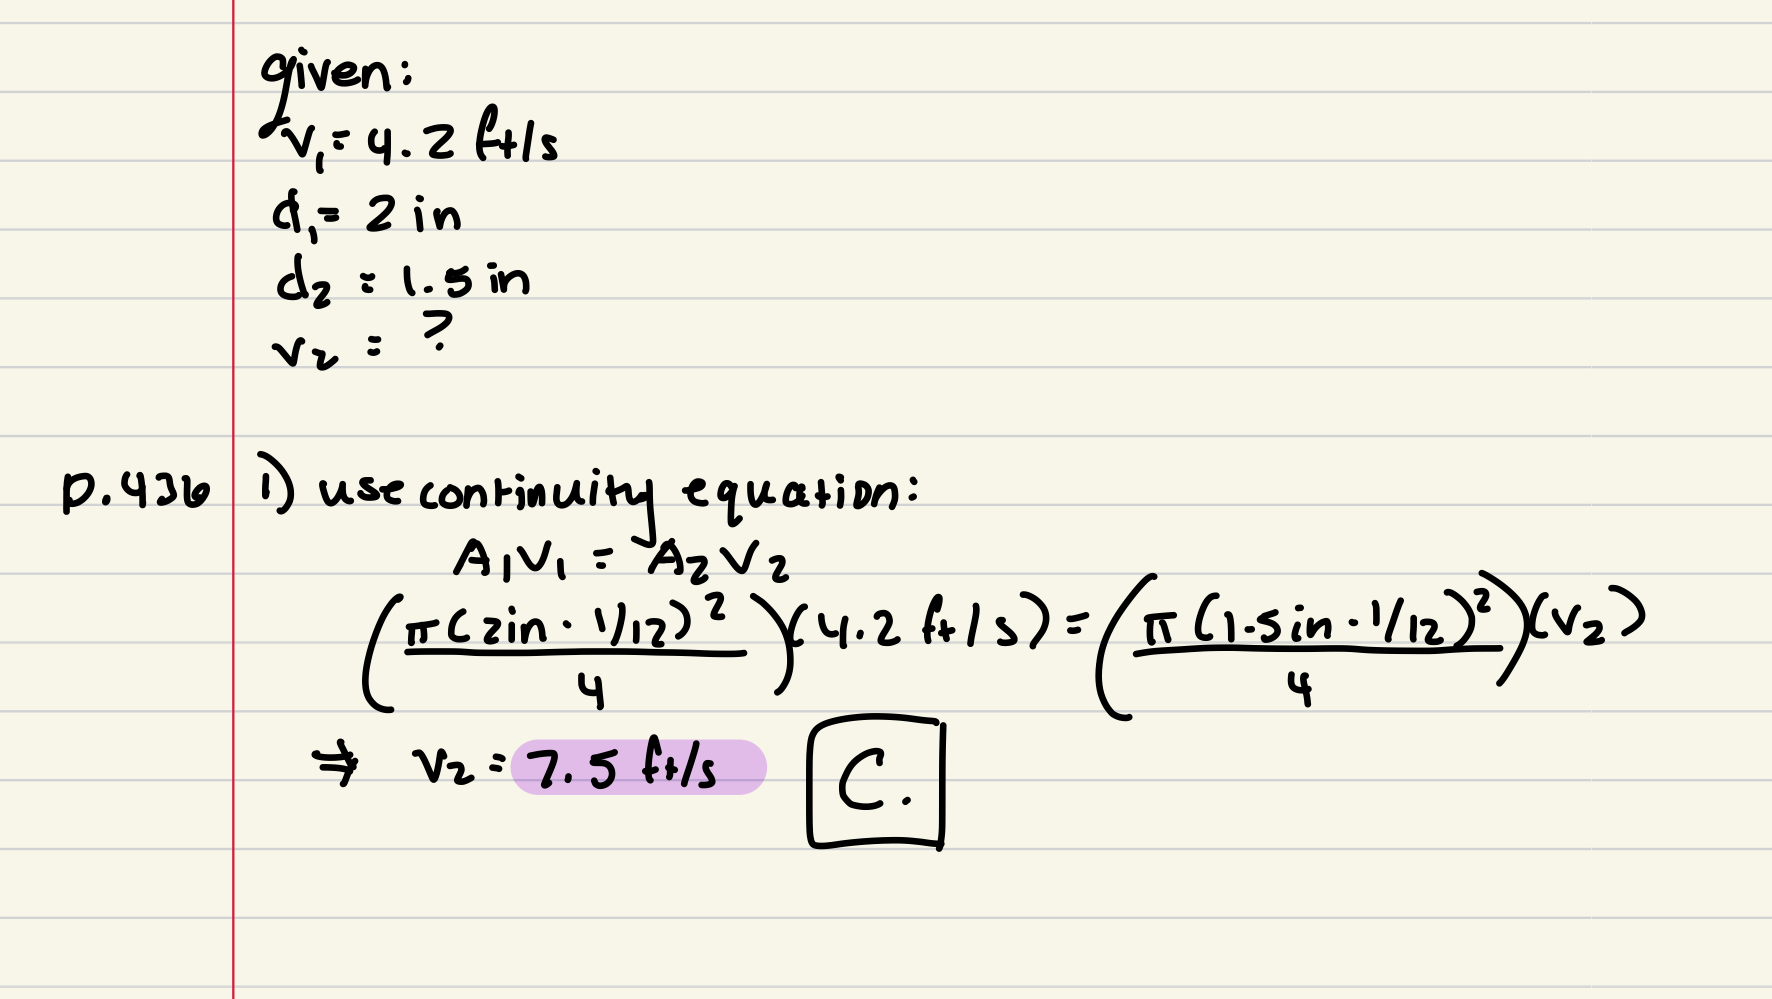 given:
v₁ = 4.2 ft/s
d₁ = 2 in
d₂ = 1.5 in
v₂ = ?
p.436 1) use continuity equation:
A₁V₁ = A₂V₂
(π(2in · 1/12)²/4)(4.2 ft/s) = (π(1.5in · 1/12)²/4)(v₂)
⇒ v₂ = 7.5 ft/s C.